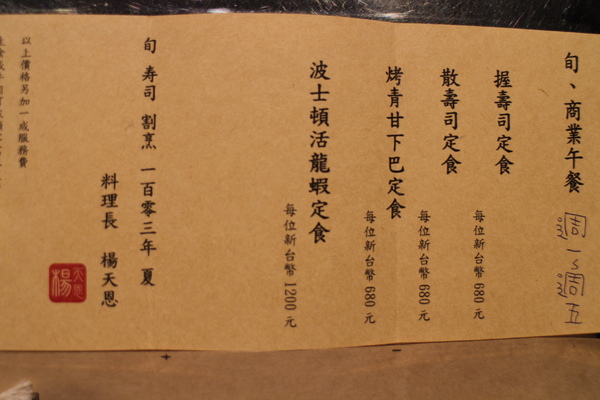 旬、商業午餐 週一~週五
握壽司定食 每位新台幣 680 元
散壽司定食 每位新台幣 680 元
烤青甘下巴定食 每位新台幣 680 元
波士頓活龍蝦定食 每位新台幣 1200 元
旬 寿司 割烹 一百零三年 夏
料理長 楊天恩
以上價格另加一成服務費